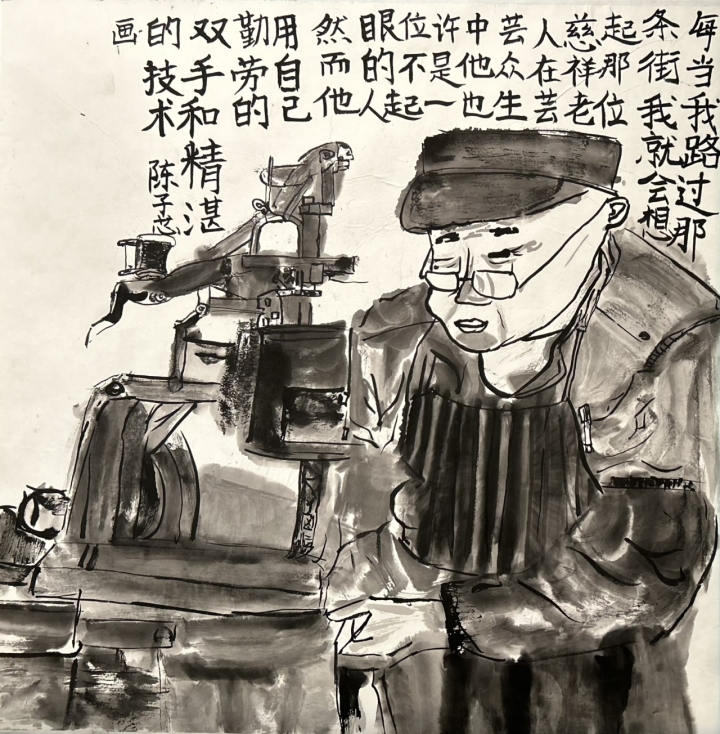 每当我路过那
条街我就会想
起那位
慈祥老
人在芸
芸众生
中他也
许是一
位不起
眼的人
然而他
用自己
勤劳的
双手和精湛
的技术
陈子芯
画